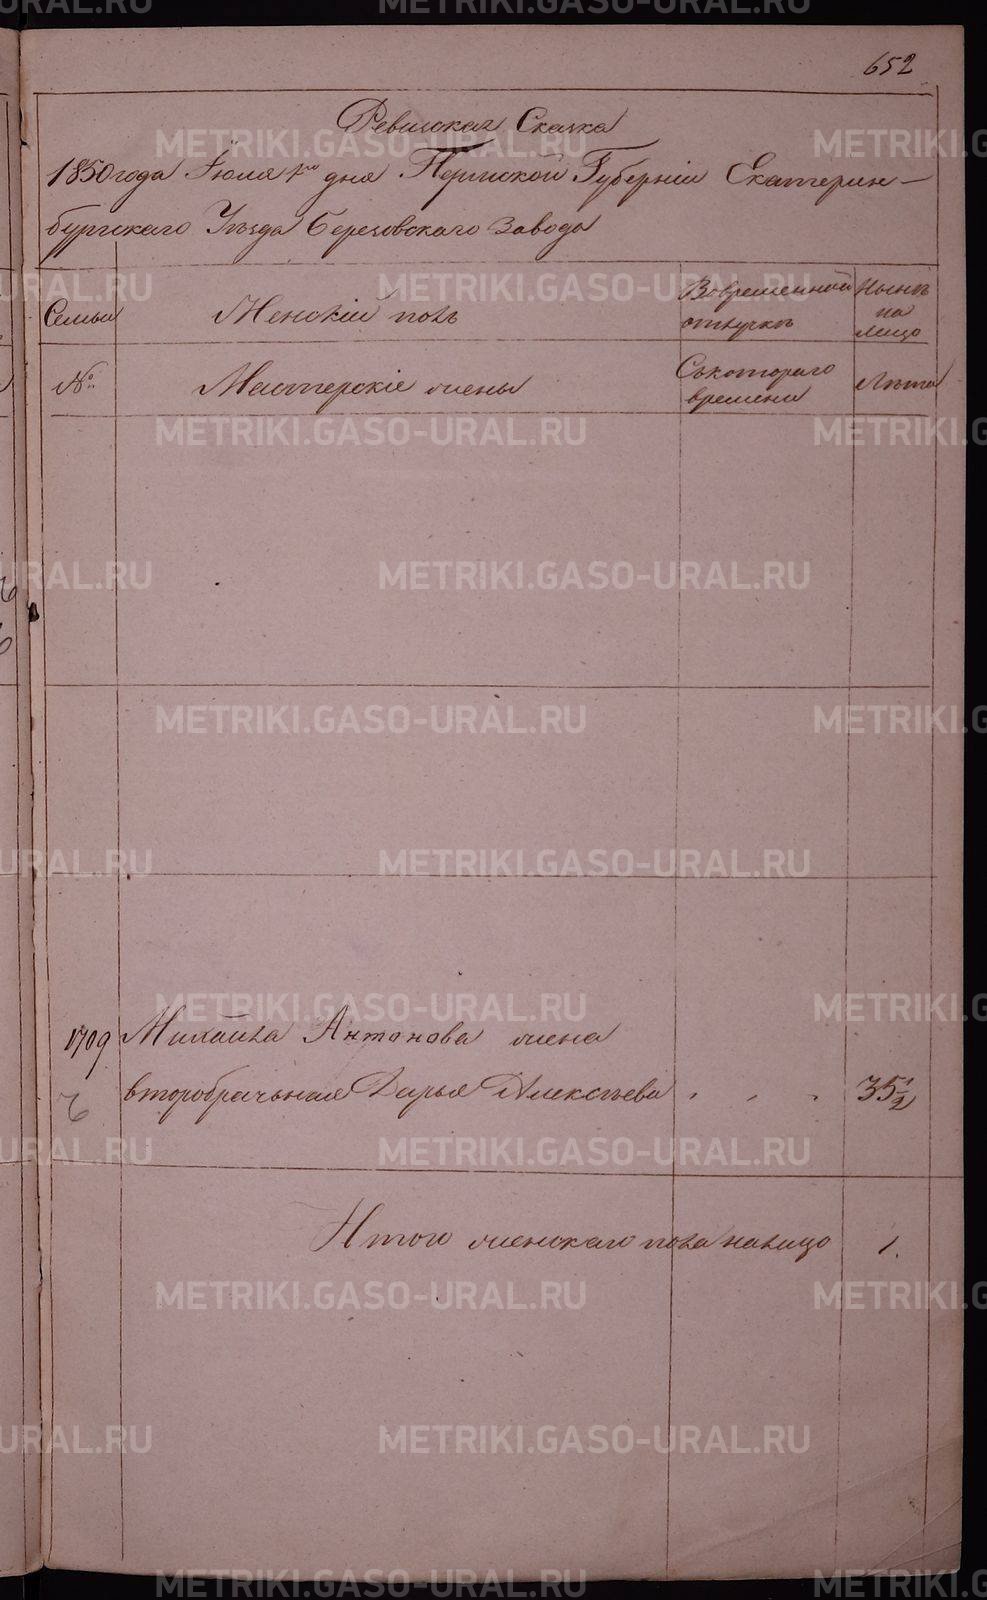 652
Ревизская Сказка
1850 года Іюля 1го дня Пермской Губерніи Екатерин-
бургскаго Уѣзда Березовскаго Завода
Семьи
Женскій полъ
Во временной
отлучкѣ
Нынѣ
на
лицо
№
Мастерскіе жены
Съ котораго
времени
Лѣта
1709
Михайла Антонова жена
второбрачьная Дарья Алексѣева
35 1/2
Итого женскаго пола налицо
1.
METRIKI.GASO-URAL.RU